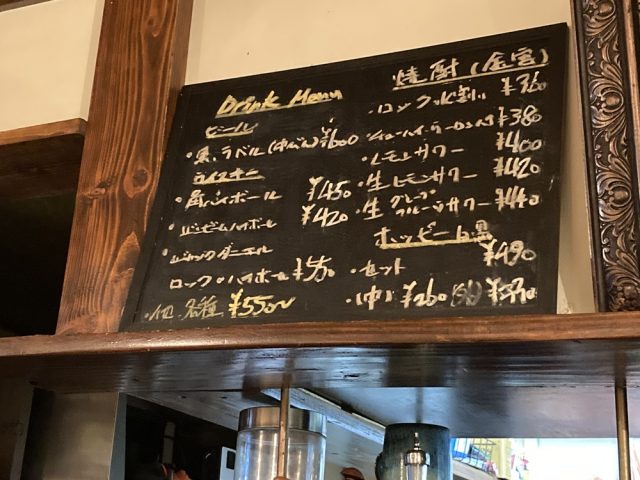 Drink Menu
ビール
・黒ラベル(中びん) ¥600
ウイスキー
・角ハイボール ¥450
・ジンビームハイボール ¥420
・ジャックダニエル
ロック・ハイボール ¥550
・他 各種 ¥550〜
焼酎(金宮)
・ロック・水割り ¥360
¥380
・レモンサワー ¥400
・生レモンサワー ¥420
・生グレープフルーツサワー ¥440
ホッピー白黒
・セット ¥490
・(中) ¥260 (外)